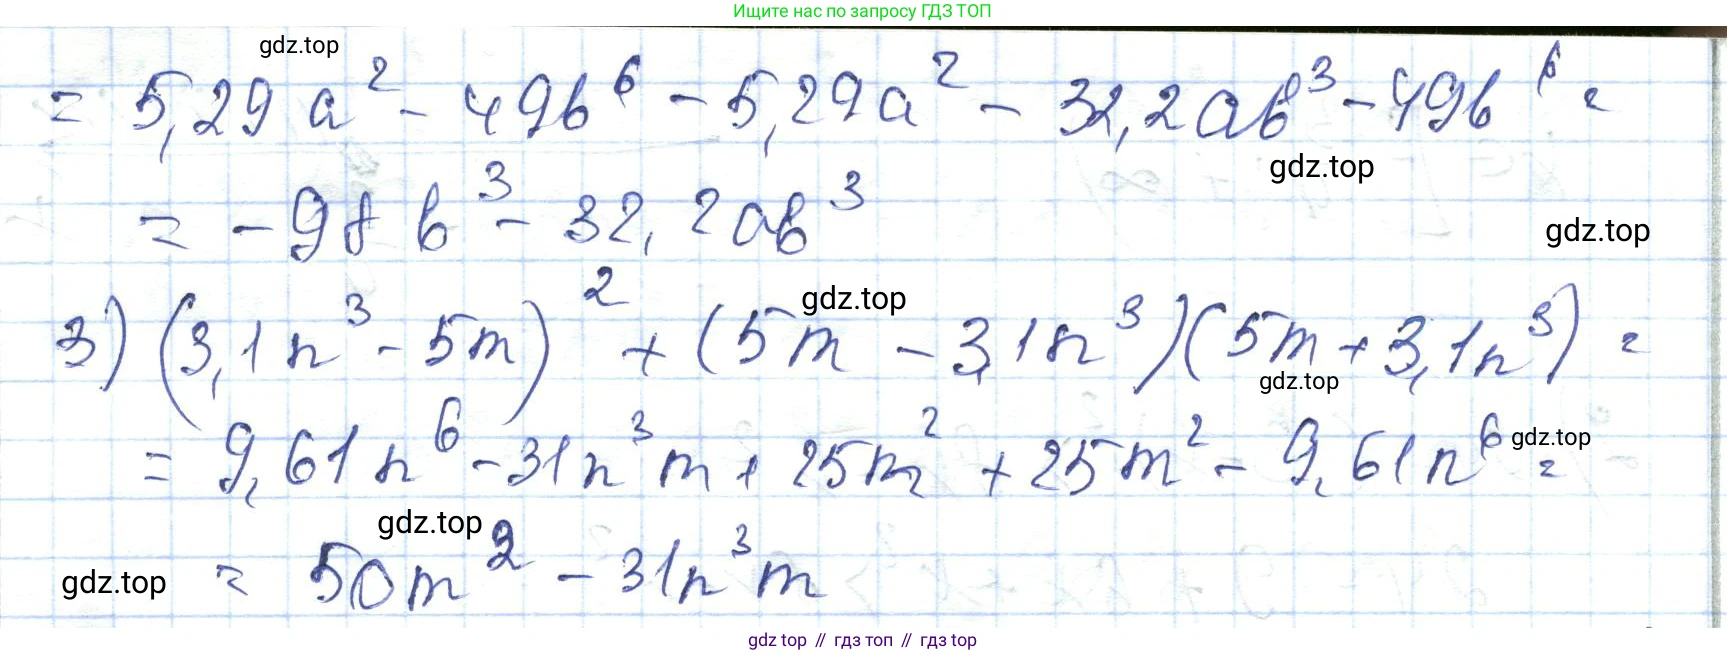 Ищите нас по запросу ГДЗ ТОП
gdz.top
= 5,29a² - 49b⁶ - 5,29a² - 32,2ab³ - 49b⁶ =
gdz.top
= -98b³ - 32,2ab³
gdz.top
gdz.top
3) (3,1n³ - 5m)² + (5m - 3,1n³)(5m + 3,1n³) =
gdz.top
= 9,61n⁶ - 31n³m + 25m² + 25m² - 9,61n⁶ =
gdz.top
gdz.top
= 50m² - 31n³m
gdz.top
gdz top // гдз топ // гдз top